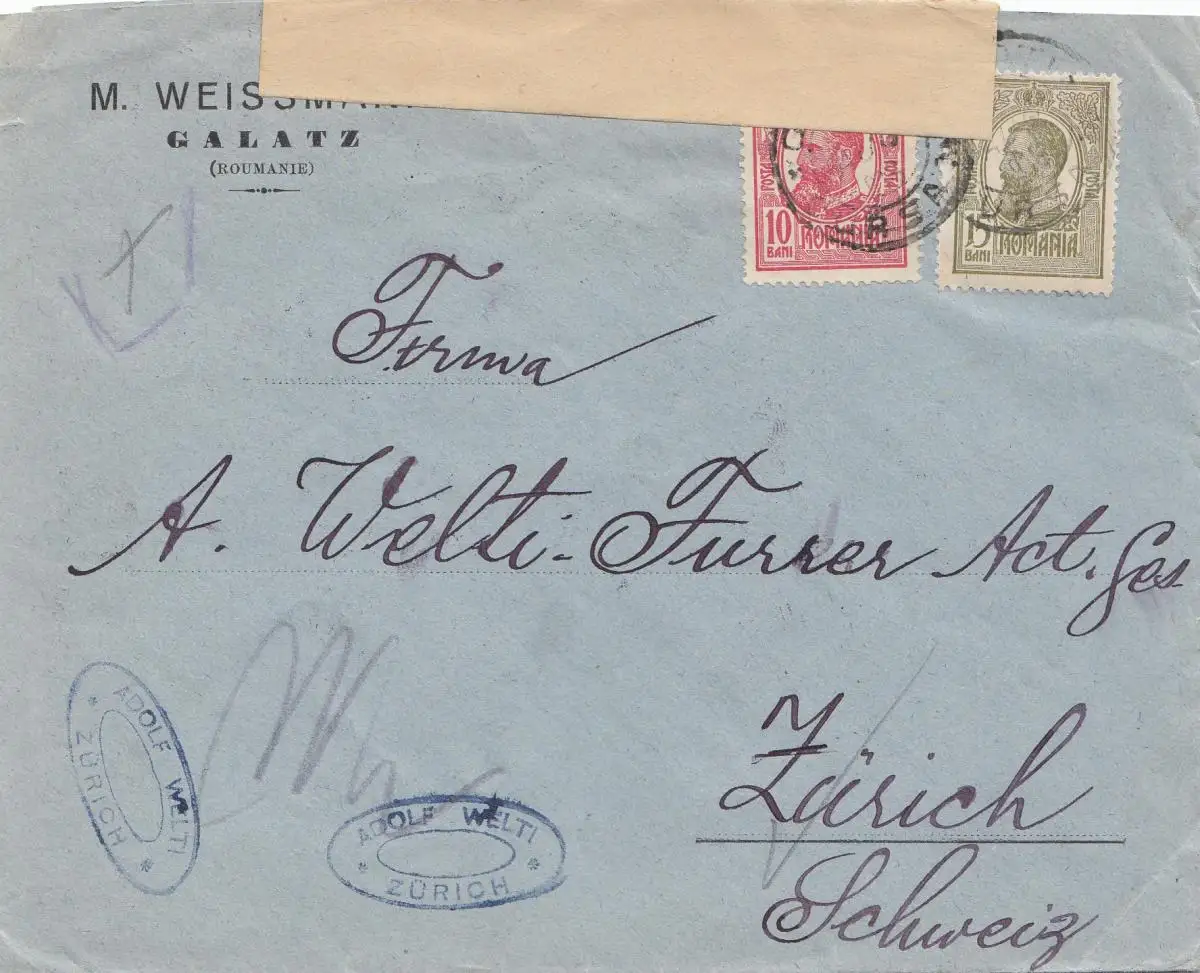 M. WEISSMAN
GALATZ
(ROUMANIE)
POSTA POSTA
10 BANI ROMANIA
POSTA POSTA
15 BANI ROMANIA
Firma
A. Welti-Furrer Act. Ges.
Zürich
Schweiz
ADOLF WELTI
* ZÜRICH *
ADOLF WELTI
* ZÜRICH *